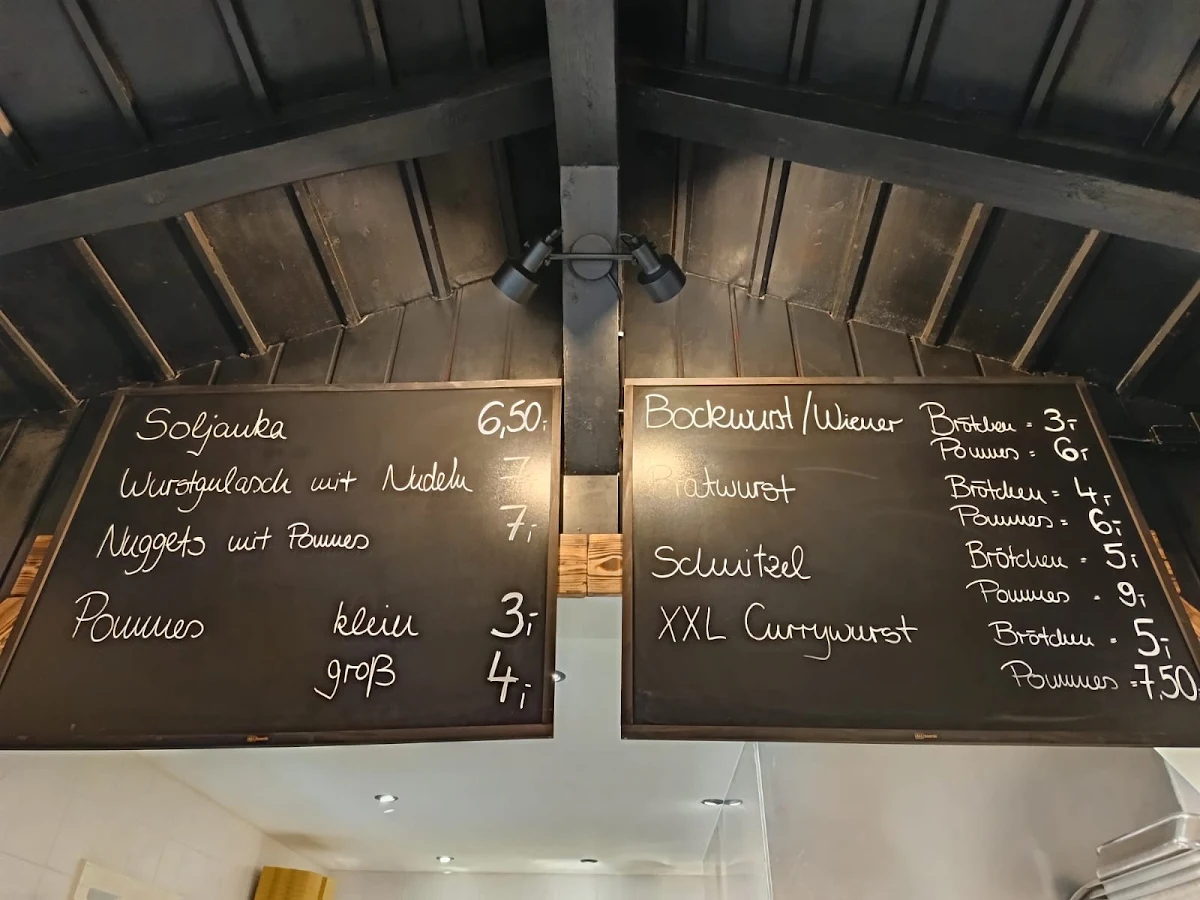 Soljanka 6,50,-
Wurstgulasch mit Nudeln 7
Nuggets mit Pommes 7,-
Pommes klein 3,-
groß 4,-
Bockwurst/Wiener Brötchen = 3,-
Pommes = 6,-
Bratwurst Brötchen = 4,-
Pommes = 6,-
Schnitzel Brötchen = 5,-
Pommes = 9,-
XXL Currywurst Brötchen = 5,-
Pommes = 7,50